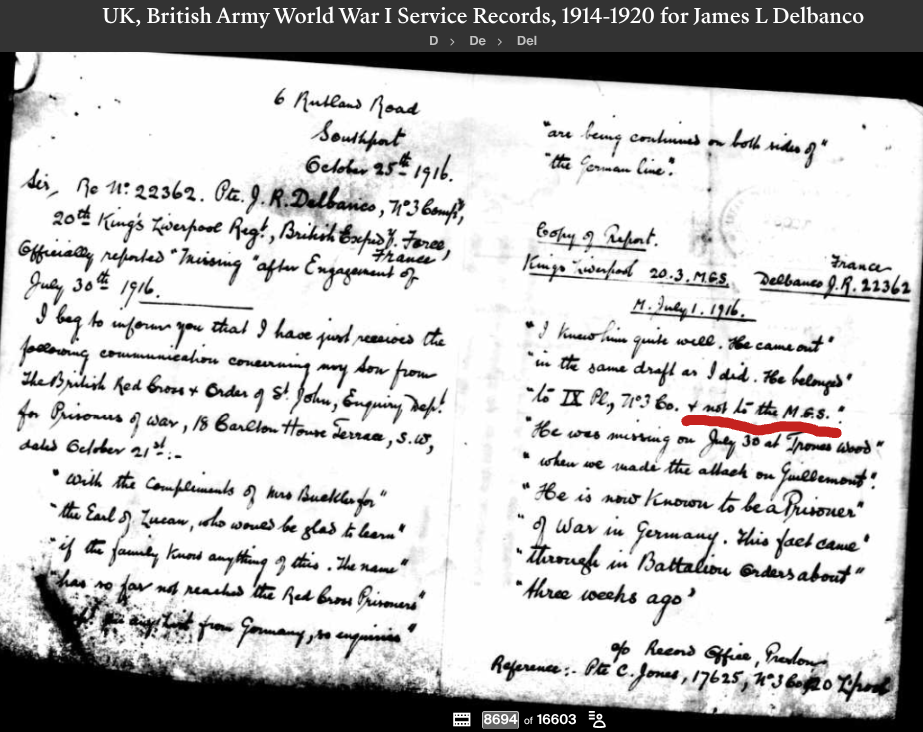 UK, British Army World War I Service Records, 1914-1920 for James L Delbanco
D > De > Del
6 Rutland Road
Southport
October 25th 1916.
Sir, Re No. 22362. Pte. J. R. Delbanco, No 3 Compy,
20th King's Liverpool Regt, British Expedy. Force,
France
Officially reported "Missing" after Engagement of
July 30th 1916.
I beg to inform you that I have just received the
following communication concerning my Son from
The British Red Cross & Order of St. John, Enquiry Dept.
for Prisoners of war, 18 Carlton House Terrace, S.W,
dated October 21st:-
"With the Compliments of Mrs Buckler for"
"the Earl of Lucan, who would be glad to learn"
"if the family know anything of this. The name"
"has so far not reached the Red Cross Prisoners"
from Germany, so enquiries"
"are being continued on both sides of"
"the German line".
Copy of Report.
France
King's Liverpool 20.3. M.G.S. Delbanco J.R. 22362
M. July 1. 1916.
"I knew him quite well. He came out"
"in the same draft as I did. He belonged"
"to IX Pl, No 3 Co. & not to the M.G.S."
"He was missing on July 30 at Trones Wood"
"when we made the attack on Guillemont".
"He is now Known to be a Prisoner"
"of War in Germany. This fact came"
"through in Battalion Orders about"
"three weeks ago"
c/o Record Office, Preston
Reference:- Pte C. Jones, 17625, No 3 Co, 20 L'pool
8694 of 16603